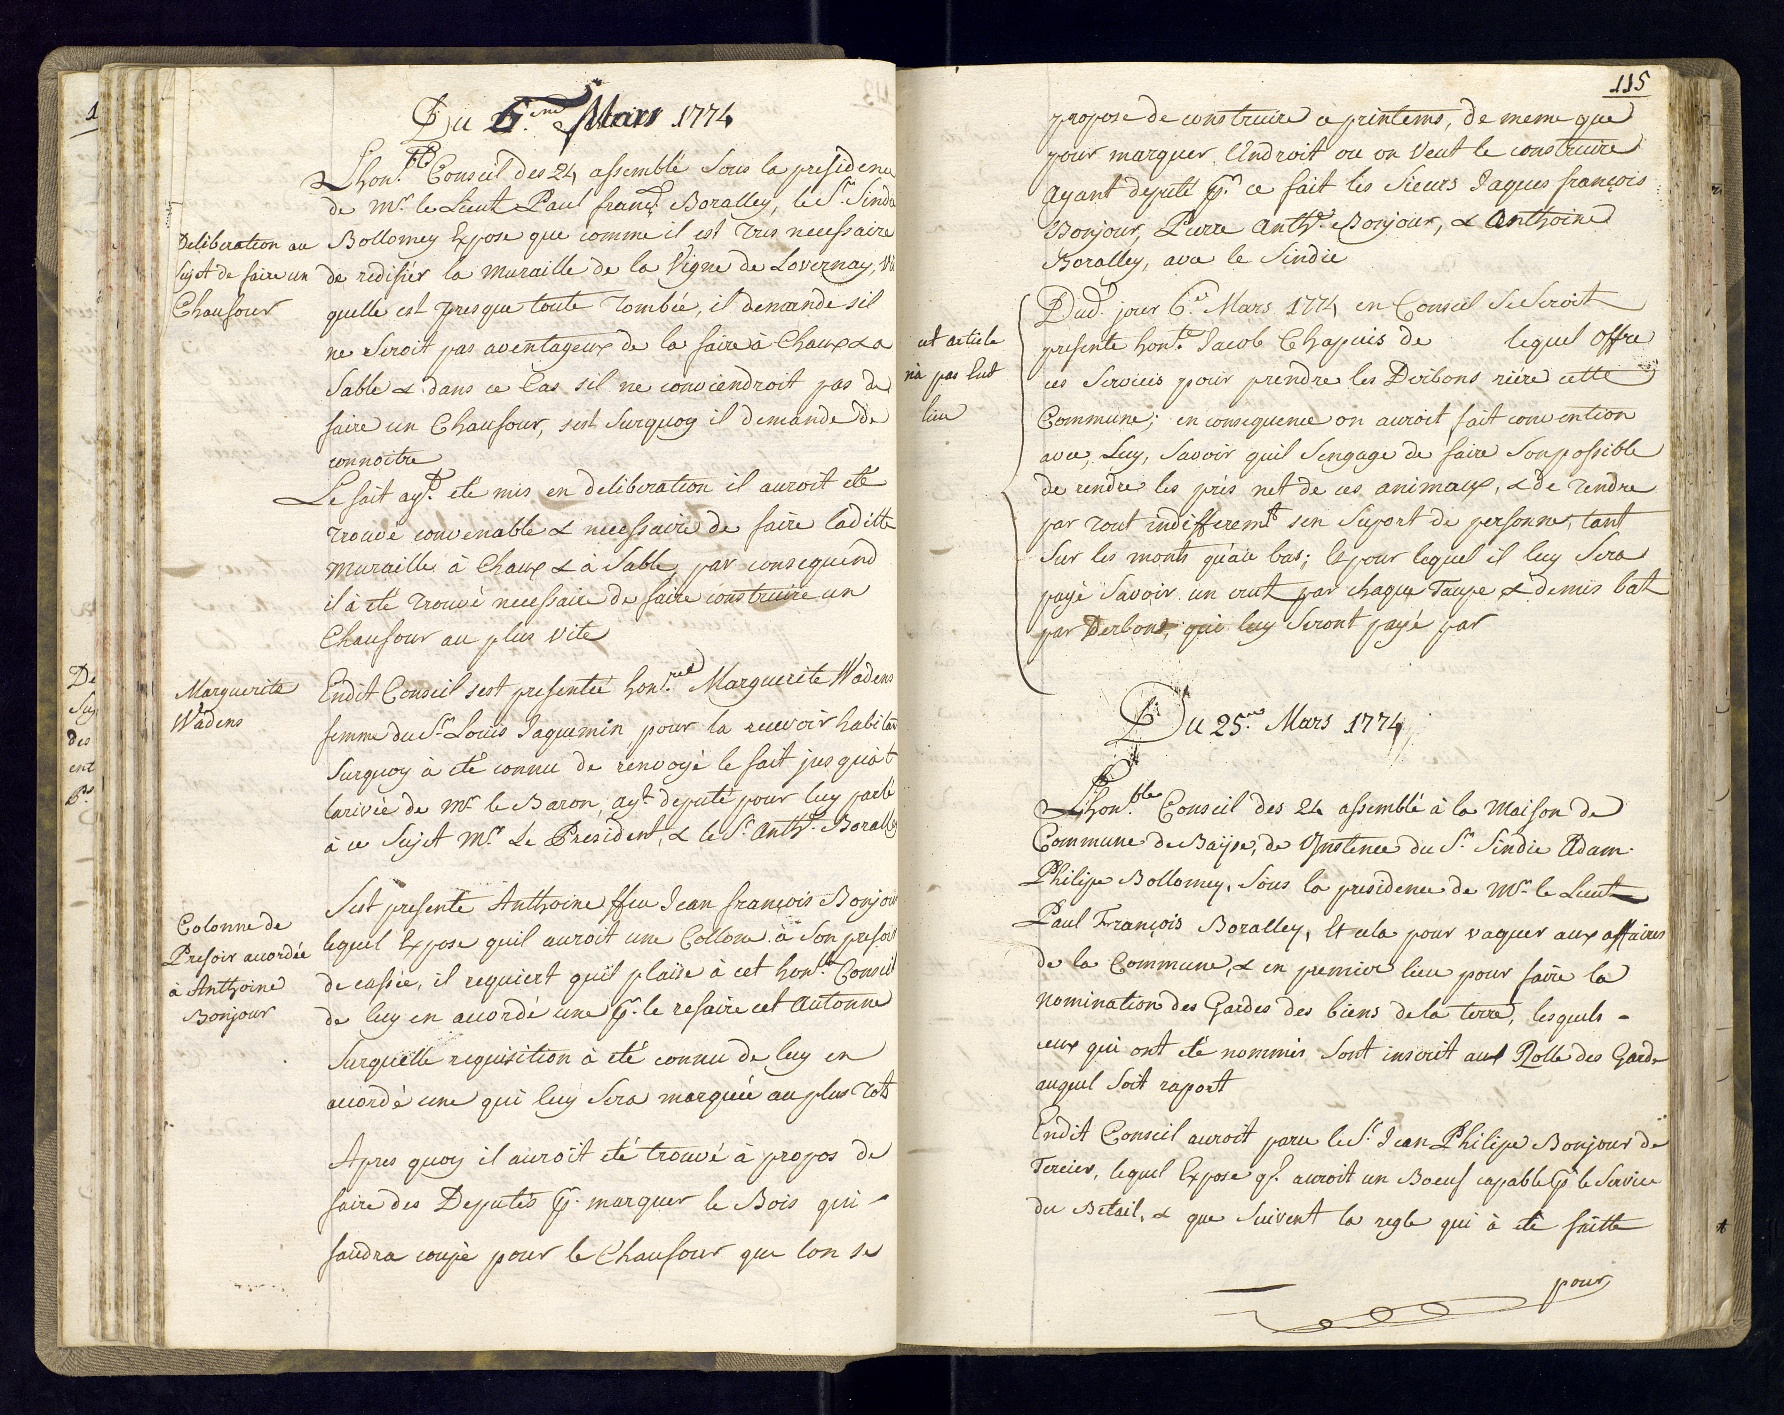 Du 6.me Mars 1774
Lhon.ble Conseil des 24 assemblé Sous la presidence
de Mr. le Lieut Paul franç. Boralley, le Sr. Sindic
Deliberation au
Sujet de faire un
Chaufour
Bollomey Expose que comme il est Tres necessaire
de redifiér la muraille de la Vigne de Lovernay, Vû
quelle est presque toute Tombée, il demande sil
ne Seroit pas aventageux de la faire à Chaux & a
Sable & dans ce Cas sil ne conviendroit pas de
faire un Chaufour, sest Surquoy il demande de
connoitre
Le fait ayt. eté mis en deliberation il auroit eté
Trouvé convenable & necessaire de faire laditte
Muraille à Chaux & à Sable, par consequend
il à eté Trouvé necessaire de faire construire un
Chaufour au plus Vite
Marguerite
Wadens
Endit Conseil sest presentée hon.rée Marguerite Wadens
femme du Sr. Louis Jaquemin pour la recevoir habitan
Surquoy à eté connu de renvoyé le fait jusquàt
larivée de Mr. le Baron, ayt. deputé pour luy parlé
à ce Sujet Mr. Le President, & le Sr. Anth. Boralley
Colonne de
Presoir acordée
à Anthoine
Bonjour
Sest presente Anthoine ffeu Jean françois Bonjour
lequel Expose quil auroit une Collone à Son presoir
de cassée, il requiert quil plaise à cet hon.ble Conseil
de luy en acordé une pr. le refaire cet Autonne
Surquelle requisition à eté connu de luy en
acordé une qui luy Sera marquée au plus Tots
Apres quoy il auroit eté trouvé à propos de
faire des Deputés pr. marquer le Bois qui
faudra coupé pour le Chaufour que lon se
115
propose de construire ce printems, de meme que
pour marquer L'Endroit ou on Veut le construire
Ayant deputé pr. ce fait les Sieurs Jaques françois
Bonjour, Pierre Anthe. Bonjour, & Anthoine
Boralley, avec le Sindic
cet article
n'à pas Eut
lieu
Dud. jour 6.e Mars 1774 en Conseil Se Seroit
presente hont. Jacob Chapuis de lequel Offre
ces Services pour prendre les Derbons riére cette
Commune; en consequence on auroit fait convention
avec, Luy, Savoir quil Sengage de faire Son possible
de rendre les priés net de ces animaux, & de Tendre
par Tout indifferemt. sen Suport de personne, tant
Sur les monts qu'au bas; Et pour lequel il luy Sera
payé Savoir un crut par chaque Taupe & demis bat
par Derbons, qui luy Seront payé par
Du 25.me Mars 1774
Lhon.ble Conseil des 24 assemblé à la Maison de
Commune de Bayse, de Instence du Sr. Sindic Adam
Philipe Bollomey, Sous la presidence de Mr. le Lieut
Paul François Boralley, Et cela pour vaquer aux affaires
de la Commune, & en premier lieu pour faire la
Nomination des Gardes des biens de la terre, lesquels -
ceux qui ont eté nommés Sont inscrit aux Rolle des Garde
auquel Soit raport
Endit Conseil auroit paru le Sr. Jean Philipe Bonjour de
Tercier, lequel Expose ql. auroit un Boeuf capable pr. le Service
du Betail, & que Suivent la regle qui à eté faitte
pour